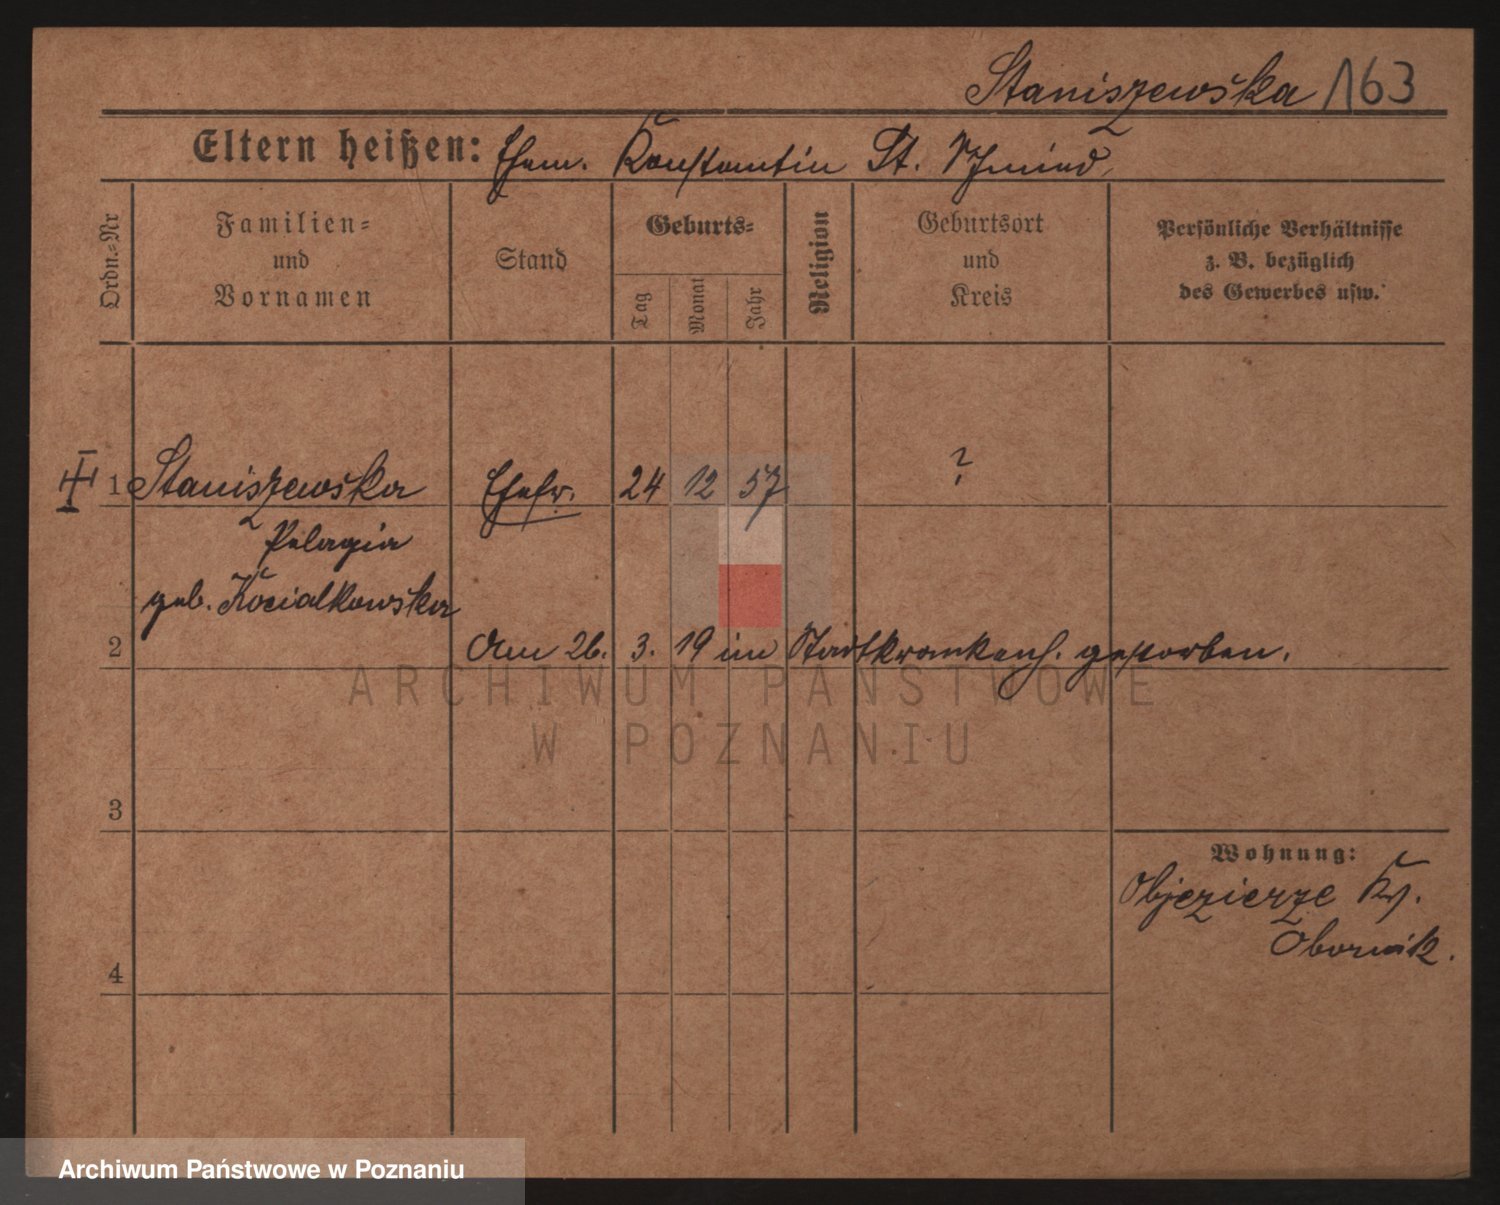 Staniszewska 163
Eltern heißen: Ehem. Konstantin St. Schmied
Ordn.-Nr
Familien- und Vornamen
Stand
Geburts-
Tag
Monat
Jahr
Religion
Geburtsort und Kreis
Persönliche Verhältnisse z. B. bezüglich des Gewerbes usw.
1 Staniszewska Ehefr. 24 12 57 ?
Pelagia
geb. Kocialkowska
2 Am 26. 3. 19 im Stadtkrankenh. gestorben.
ARCHIWUM PAŃSTWOWE
W POZNANIU
3
Wohnung:
Objezierze Kr.
Obornik.
4
Archiwum Państwowe w Poznaniu